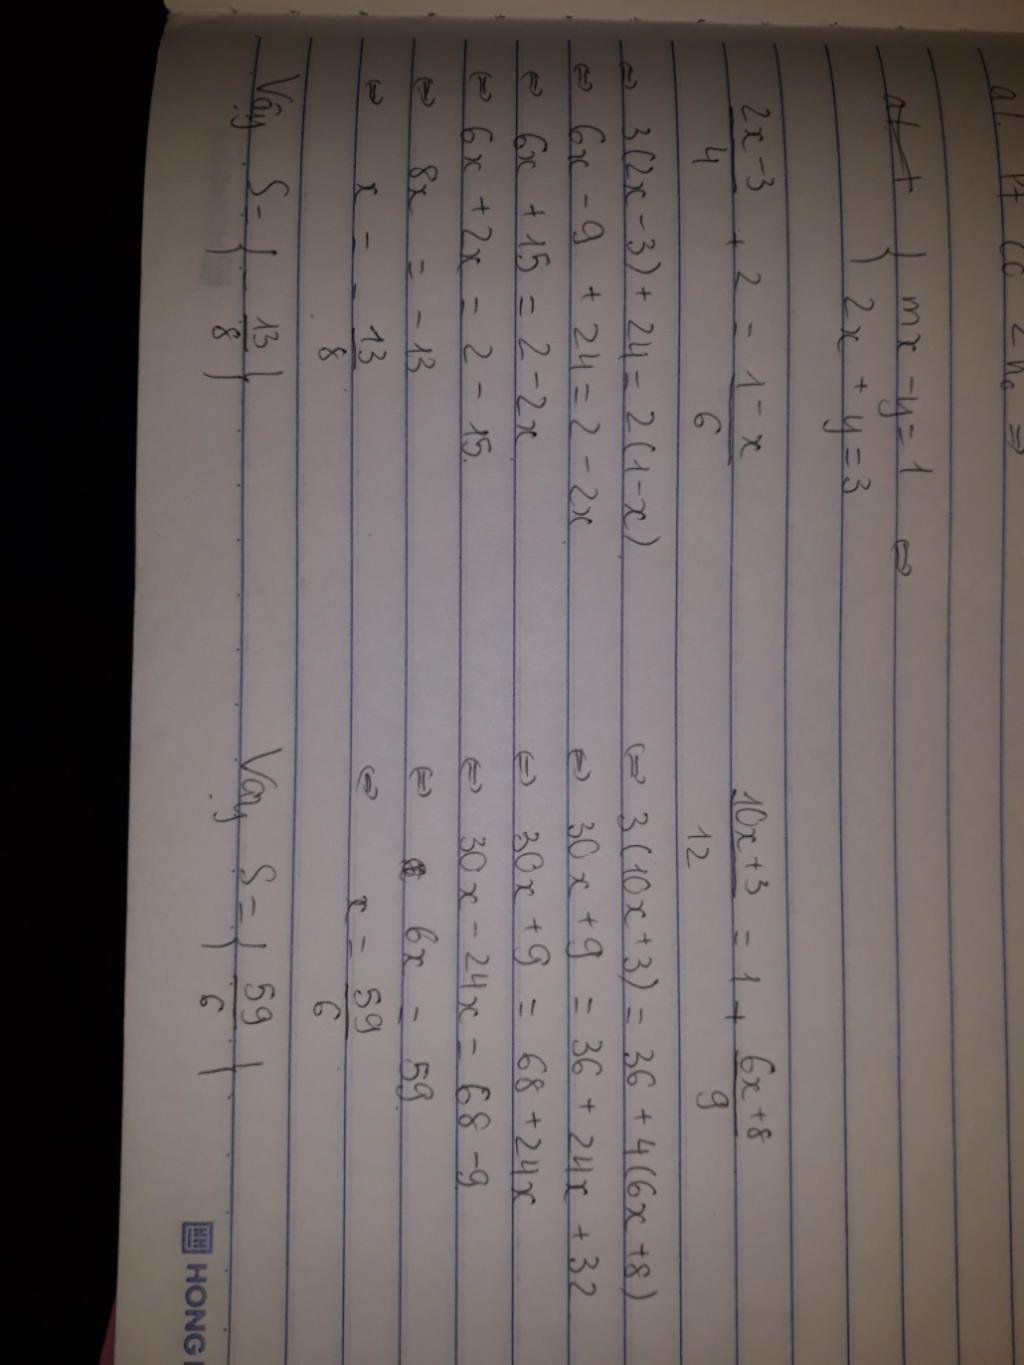 a). Pt có 2 no ⇒
a)
{ mx - y = 1 ⇔
{ 2x + y = 3
(2x-3)/4 + 2 = (1-x)/6
⇔ 3(2x-3) + 24 = 2(1-x)
⇔ 6x - 9 + 24 = 2 - 2x
⇔ 6x + 15 = 2 - 2x
⇔ 6x + 2x = 2 - 15
⇔ 8x = -13
⇔ x = -13/8
Vậy S = { -13/8 }
(10x+3)/12 = 1 + (6x+8)/9
⇔ 3(10x+3) = 36 + 4(6x+8)
⇔ 30x + 9 = 36 + 24x + 32
⇔ 30x + 9 = 68 + 24x
⇔ 30x - 24x = 68 - 9
⇔ 6x = 59
⇔ x = 59/6
Vậy S = { 59/6 }
HONG